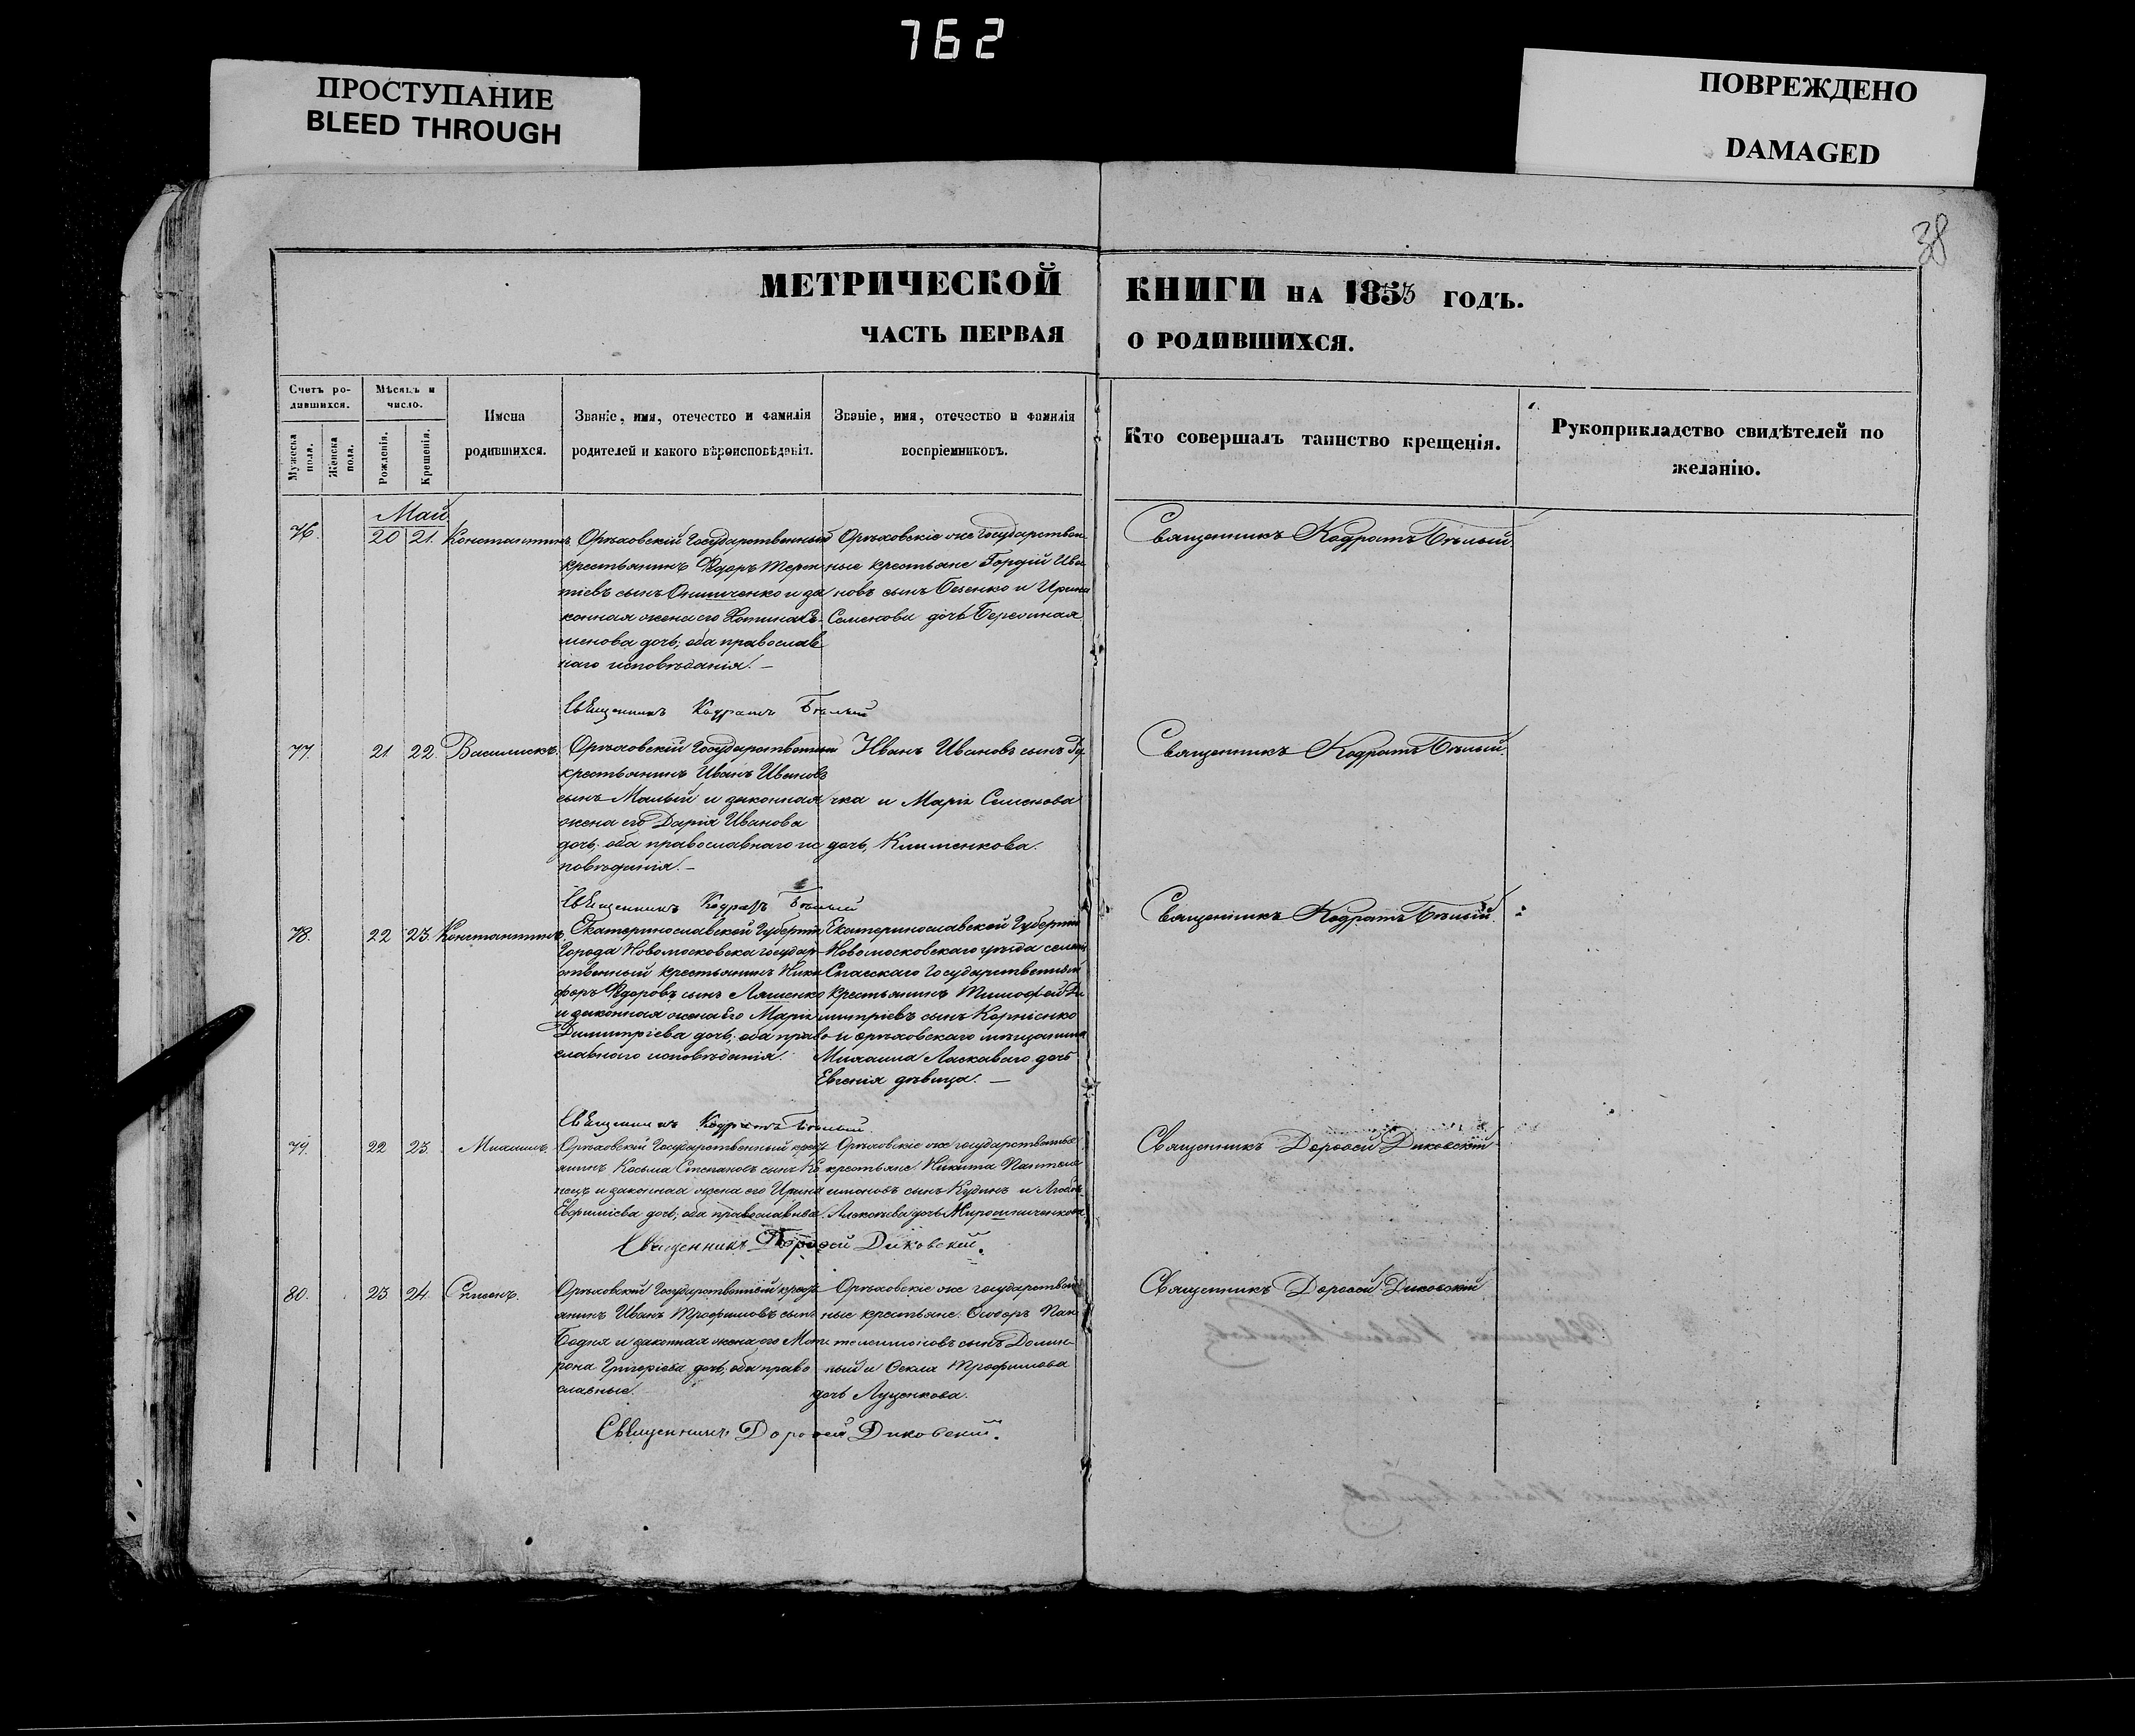 762
ПРОСТУПАНИЕ
BLEED THROUGH
ПОВРЕЖДЕНО
DAMAGED
38
МЕТРИЧЕСКОЙ КНИГИ НА 1853 ГОДЪ.
ЧАСТЬ ПЕРВАЯ О РОДИВШИХСЯ.
Счетъ родившихся.
Мужеска пола.
Женска пола.
Мѣсяцъ и число.
Рожденія.
Крещенія.
Имена родившихся.
Званіе, имя, отечество и фамилія родителей и какого вѣроисповѣданія.
Званіе, имя, отечество и фамилія воспріемниковъ.
Кто совершалъ таинство крещенія.
Рукоприкладство свидѣтелей по желанію.
Май
76. 20 21. Константинъ
Орѣховскій Государственный
крестьянинъ Ѳедоръ Терен
тіевъ сынъ Онищенко и за
конная жена его Фотина Се
менова дочь; оба православ
наго исповѣданія. —
Орѣховскіе же Государствен
ные крестьяне Гордій Ива
новъ сынъ и Ирина
Семенова дочь
Священникъ Кодратъ Бѣлый.
Священникъ Кодратъ Бѣлый
77. 21 22. Василискъ.
Орѣховскій Государственный
крестьянинъ Иванъ Ивановъ
сынъ Малый и законная
жена его Дарія Иванова
дочь; оба православнаго ис
повѣданія. —
Иванъ Ивановъ сынъ
чка и Марія Семенова
дочь, Клименкова.
Священникъ Кодратъ Бѣлый.
Священникъ Кодратъ Бѣлый
78. 22 23. Константинъ
Екатеринославской Губерніи
Города Новомосковска государ
ственный крестьянинъ Ники
форъ Ѳедоровъ сынъ Ляшенко
и законная жена его Марія
Димитріева дочь; оба право
славнаго исповѣданія.
Екатеринославской Губерніи
Новомосковскаго уѣзда села
Спасскаго Государственный
крестьянинъ Тимофей Ди
митріевъ сынъ Корніенко
и орѣховскаго мѣщанина
Михаила Ласкаваго дочь
Евгенія дѣвица. —
Священникъ Кодратъ Бѣлый.
Священникъ Кодратъ Бѣлый.
79. 22 23. Михаилъ.
Орѣховскій Государственный крест
янинъ Косьма Степановъ сынъ
и законная жена его Ирина
Евфиміева дочь; оба православные.
Орѣховскіе же государственные
крестьяне Никита Пантеле
имоновъ сынъ Кудинъ и
дочь Мирошниченкова
Священникъ Дороѳей Диковскій
Священникъ Дороѳей Диковскій.
80. 23 24. Симеонъ.
Орѣховскій Государственный крест
янинъ Иванъ Трофимовъ сынъ
Бодня и законная жена его Мат
рона Григоріева дочь; оба право
славные.
Орѣховскіе же государствен
ные крестьяне: Ѳеодоръ Пан
телеимоновъ сынъ
и Ѳекла Трофимова
дочь Луценкова.
Священникъ Дороѳей Диковскій
Священникъ Дороѳей Диковскій.